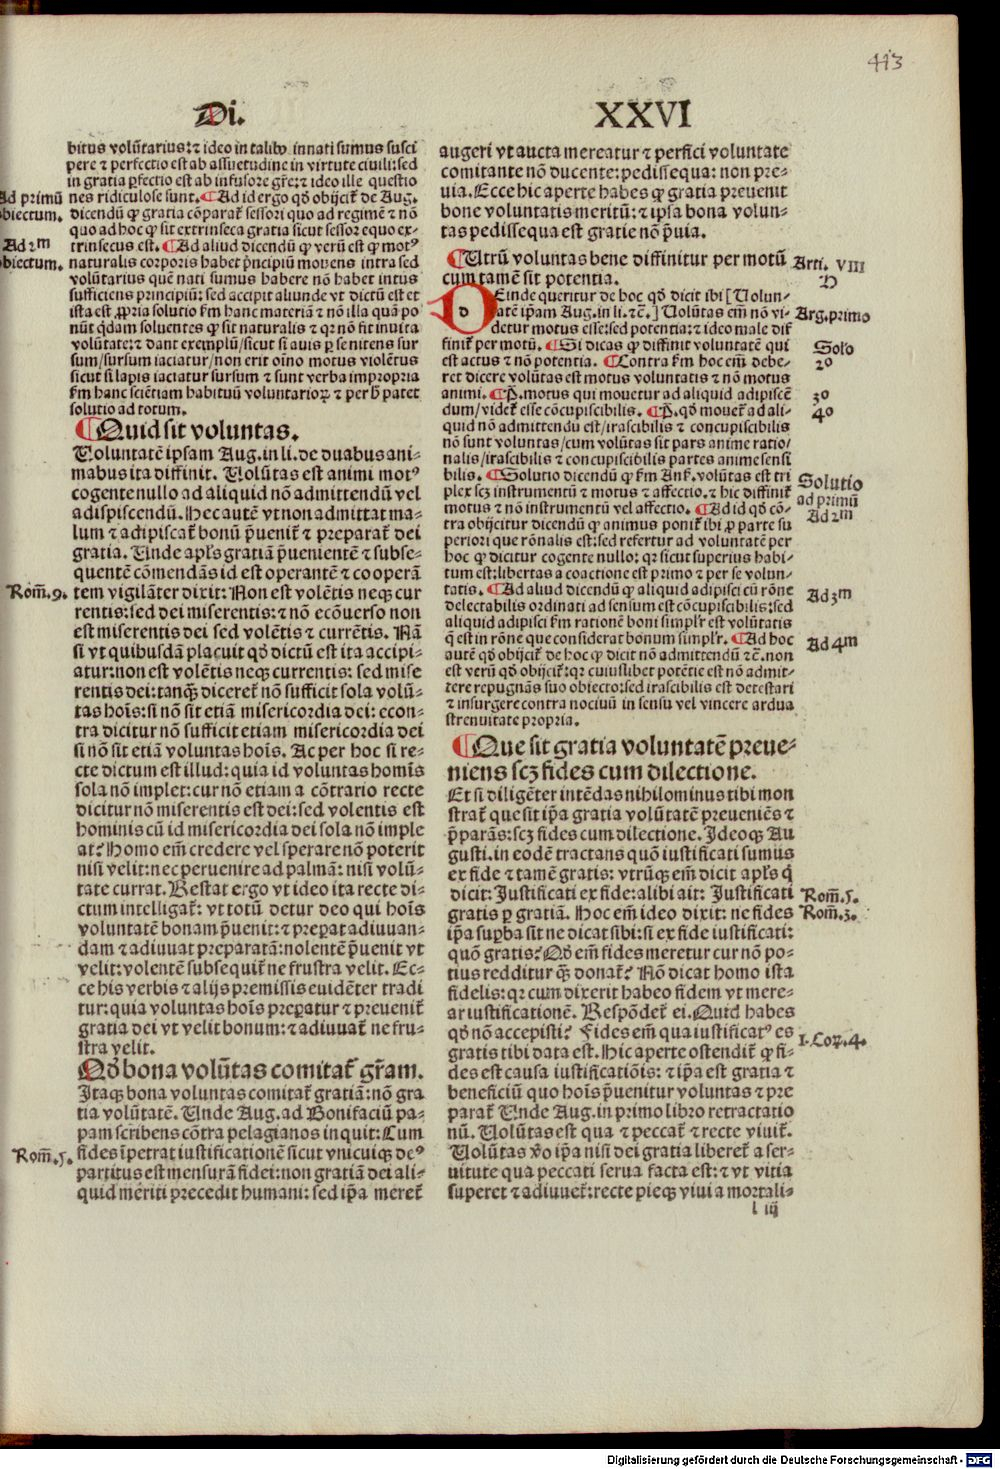 413
Di. XXVI
bitus volūtarius: ⁊ ideo in talib9 innati sumus susci
pere ⁊ perfectio est ab assuetudine in virtute ciuili: sed
in gratia ꝑfectio est ab infusore gr̄e: ⁊ ideo ille questio
nes ridiculose sunt. ¶ Ad id ergo qd̄ obijcit̄ de Aug.
dicendū ꝙ gratia cōparat̄ sessori quo ad regimē ⁊ nō
quo ad hoc ꝙ sit extrinseca gratia sicut sessor equo ex-
trinsecus est. ¶ Ad aliud dicendū ꝙ verū est ꝙ mot9
naturalis corporis habet p̄ncipiū mouens intra sed
volūtarius quē nati sumus habere nō habet intus
sufficiens principiū: sed accipit aliunde vt dictū est et
ista est ꝓpria solutio km̄ hanc materiā ⁊ nō illa quā po
nūt q̄dam soluentes ꝙ sit naturalis ⁊ qꝛ nō fit inuita
volūtate: ⁊ dant exemplū/sicut si auis ꝑ se nitens sur
sum/sursum iaciatur/non erit oīno motus violētus
sicut si lapis iaciatur sursum ⁊ sunt verba impropria
km̄ hanc sciētiam habituū voluntarioꝝ ⁊ per h̄ patet
solutio ad totum.
¶ Quid sit voluntas.
Voluntatē ipsam Aug. in li. de duabus ani-
mabus ita diffinit. Volūtas est animi mot9
cogente nullo ad aliquid nō admittendū vel
adispiscendū. Hec autē vt non admittat ma-
lum ⁊ adipiscat̄ bonū p̄uenit̄ ⁊ preparat̄ dei
gratia. Unde apl̄s gratiā p̄uenientē ⁊ subse-
quentē cōmendās id est operantē ⁊ cooperā
tem vigilāter dixit: Non est volētis neqꝫ cur
rentis: sed dei miserentis: ⁊ nō ecōuerso non
est miserentis dei sed volētis ⁊ currētis. Nā
si vt quibusdā placuit qd̄ dictū est ita accipi-
atur: non est volētis neqꝫ currentis: sed mise
rentis dei: tanqꝫ diceret̄ nō sufficit sola volū-
tas hoīs: si nō sit etiā misericordia dei: econ-
tra dicitur nō sufficit etiam misericordia dei
si nō sit etiā voluntas hoīs. Ac per hoc si re-
cte dictum est illud: quia id voluntas homīs
sola nō implet: cur nō etiam a cōtrario recte
dicitur nō miserentis est dei: sed volentis est
hominis cū id misericordia dei sola nō imple
at? Homo em̄ credere vel sperare nō poterit
nisi velit: nec peruenire ad palmā: nisi volū-
tate currat. Restat ergo vt ideo ita recte di-
ctum intelligat̄: vt totū detur deo qui hoīs
voluntatē bonam p̄uenit: ⁊ prepat adiuuan-
dam ⁊ adiuuat preparatā: nolentē p̄uenit vt
velit: volentē subsequit̄ ne frustra velit. Ec-
ce his verbis ⁊ alijs premissis euidēter tradi
tur: quia voluntas hoīs preꝑatur ⁊ preuenit̄
gratia dei vt velit bonum: ⁊ adiuuat̄ ne fru-
stra velit.
Qd̄ bona volūtas comitat̄ gr̄am.
Itaqꝫ bona voluntas comitat̄ gratiā: nō gra
tia volūtatē. Unde Aug. ad Bonifaciū pa-
pam scribens cōtra pelagianos inquit: Cum
fides īpetrat iustificationē sicut vnicuiqꝫ de9
partitus est mensurā fidei: non gratiā dei ali-
quid meriti precedit humani: sed ip̄a meret̄
Ad primū
obiectum.
Ad 2m
obiectum.
Rom̄.9.
Rom̄.5.
augeri vt aucta mereatur ⁊ perfici voluntate
comitante nō ducente: pedissequa: non pre-
uia. Ecce hic aperte habes ꝙ gratia preuenit
bone voluntatis meritū: ⁊ ipsa bona volun-
tas pedissequa est gratie nō p̄uia.
¶ Utrū voluntas bene diffinitur per motū
cum tamē sit potentia.
Deinde queritur de hoc qd̄ dicit ibi [Volun-
tatē ip̄am Aug. in li. ⁊c̄.] Volūtas em̄ nō vi-
detur motus esse: sed potentia: ⁊ ideo male dif
finit̄ per motū. ¶ Si dicas ꝙ diffinit voluntatē qui
est actus ⁊ nō potentia. ¶ Contra km̄ hoc em̄ debe-
ret dicere volūtas est motus voluntatis ⁊ nō motus
animi. ¶ P̄. motus qui mouetur ad aliquid adipiscē
dum/videt̄ esse cōcupiscibilis. ¶ P̄. qd̄ mouet̄ ad ali-
quid nō admittendū est/irascibilis ⁊ concupiscibilis
nō sunt voluntas/cum volūtas sit pars anime ratio-
nalis/irascibilis ⁊ concupiscibilis partes anime sensi
bilis. ¶ Solutio dicendū ꝙ km̄ Ans̄. volūtas est tri
plex scꝫ instrumentū ⁊ motus ⁊ affectio. ⁊ hic diffinit̄
motus ⁊ nō instrumentū vel affectio. ¶ Ad id qd̄ cō-
tra obijcitur dicendū ꝙ animus ponit̄ ibi ꝓ parte su
periori que rōnalis est: sed refertur ad voluntatē per
hoc ꝙ dicitur cogente nullo: qꝛ sicut superius habi-
tum est: libertas a coactione est primo ⁊ per se volun-
tatis. ¶ Ad aliud dicendū ꝙ aliquid adipisci cū rōne
delectabilis ordinati ad sensum est cōcupiscibilis: sed
aliquid adipisci km̄ rationē boni simplr̄ est volūtatis
q̄ est in rōne que considerat bonum simplr̄. ¶ Ad hoc
autē qd̄ obijcit̄ de hoc ꝙ dicit nō admittendū ⁊c̄. non
est verū qd̄ obijcit̄: qꝛ cuiuslibet potētie est nō admit-
tere repugnās suo obiecto: sed irascibilis est detestari
⁊ insurgere contra nociuū in sensu vel vincere ardua
strenuitate propria.
¶ Que sit gratia voluntatē preue-
niens scꝫ fides cum dilectione.
Et si diligēter intēdas nihilominus tibi mon
strat̄ que sit ip̄a gratia volūtatē preueniēs ⁊
p̄parās: scꝫ fides cum dilectione. Ideoqꝫ Au
gusti. in eodē tractans quō iustificati sumus
ex fide ⁊ tamē gratis: vtrūqꝫ em̄ dicit apl̄s q̇
dicit: Justificati ex fide: alibi ait: Justificati
gratis ꝑ gratiā. Hoc em̄ ideo dixit: ne fides
ip̄a suꝑba sit ne dicat sibi: si ex fide iustificati:
quō gratis? Qd̄ em̄ fides meretur cur nō po-
tius redditur qꝫ donat̄? Nō dicat homo ista
fidelis: qꝛ cum dixerit habeo fidem vt mere-
ar iustificationē. Respōdet̄ ei. Quid habes
qd̄ nō accepisti? Fides em̄ qua iustificat9 es
gratis tibi data est. Hic aperte ostendit̄ ꝙ fi-
des est causa iustificatiōis: ⁊ ip̄a est gratia ⁊
beneficiū quo hoīs p̄uenitur voluntas ⁊ pre
parat̄ Unde Aug. in primo libro retractatio
nū. Volūtas est qua ⁊ peccat̄ ⁊ recte viuit̄.
Volūtas v̄o ip̄a nisi dei gratia liberet̄ a ser-
uitute qua peccati serua facta est: ⁊ vt vitia
superet ⁊ adiuuet̄: recte pieqꝫ viui a mortali-
l iij
Arti. VIII
D
Arg. primo
Solo
2o
3o
4o
Solutio
ad primū
Ad 2m
Ad 3m
Ad 4m
Rom̄.5.
Rom̄.3.
1. Coꝝ.4.
Digitalisierung gefördert durch die Deutsche Forschungsgemeinschaft - DFG